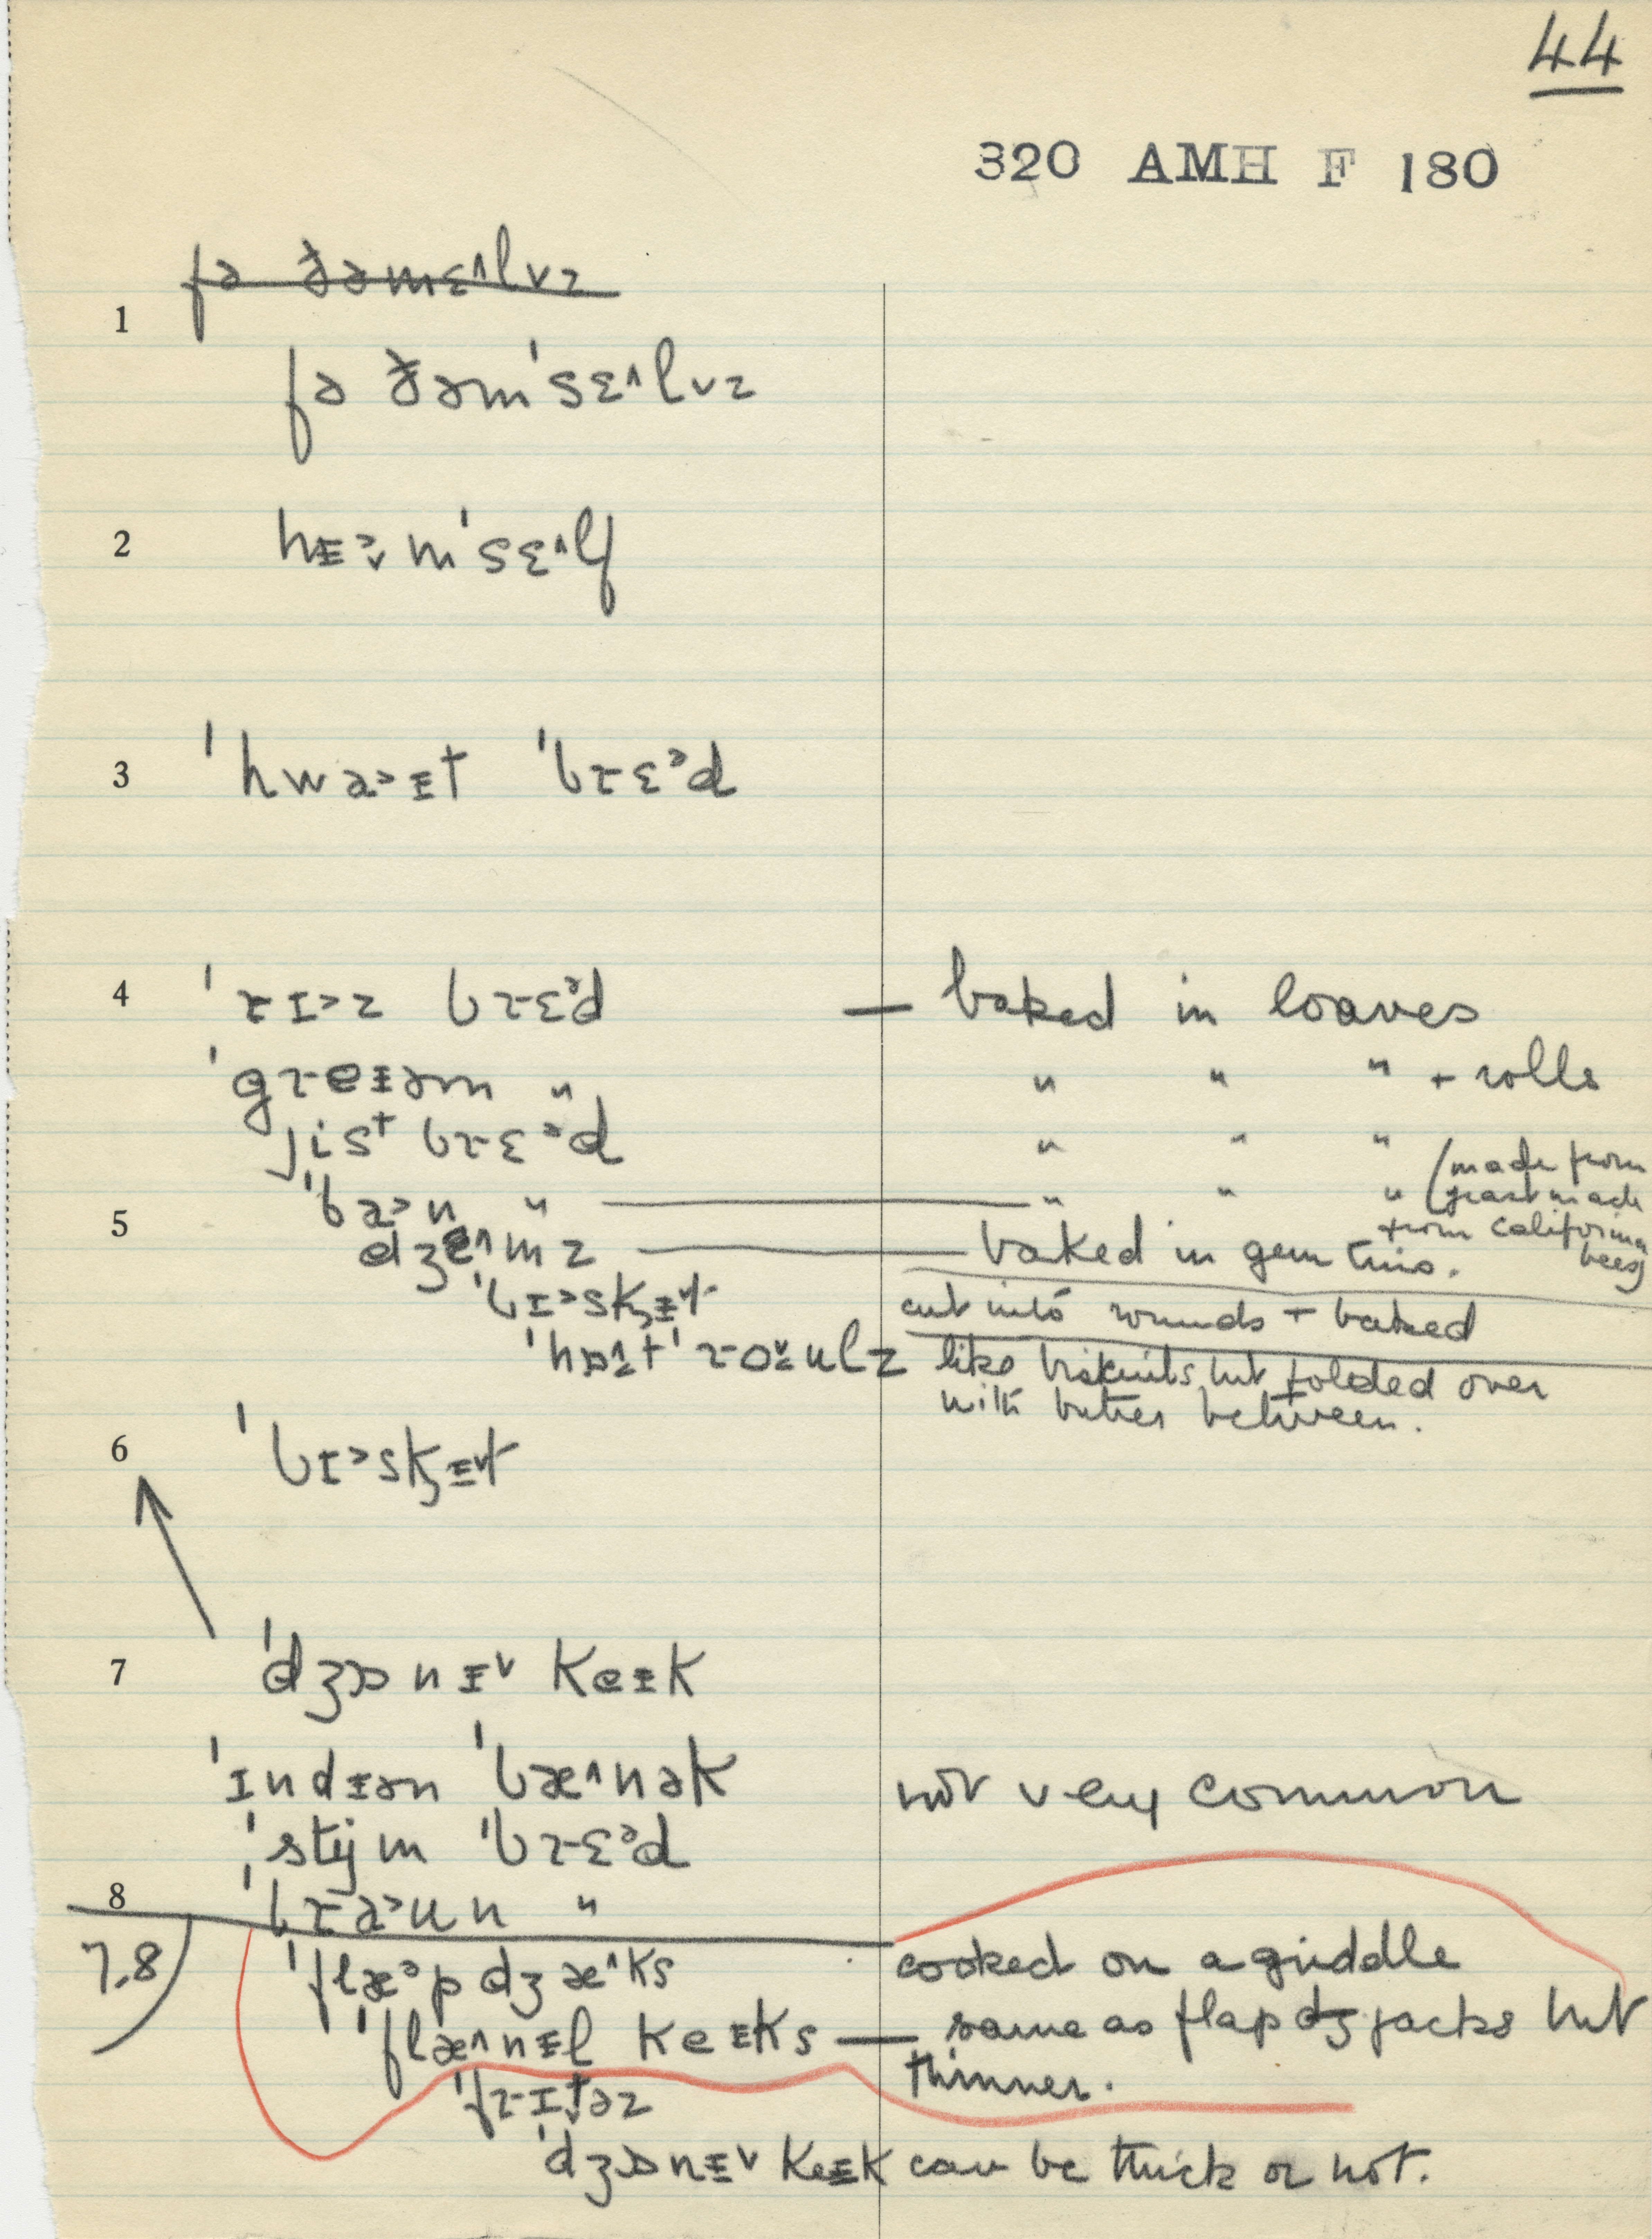 44
320 AMH F 180
fə ðəmɛ˄lvz
1
fə ðəm'sɛ˄lvz
2 hᵻə̬m'sɛ˄lf
3 'hwa˃ᵻt 'bɽɛᵊd
4 'ɽɪ˃z bɽɛᵊd — baked in loaves
'gɽeᵻəm " " " " + rolls
jist bɽɛᵊd " " "
'ba˃n " " " " (made from yeast made from California bees)
5 dʒɛ˄mz baked in gem tins.
'bɪ˃skᵻt cut into rounds + baked
'hɒt'ɽoulz like biskuits but folded over
with butter between.
6 'bɪ˃skᵻt
7 'dʒɒnᵻ˅ keᵻk
'ɪndᵻən 'bæ˄nək not very common
'stijm 'bɽɛᵊd
8 'bɽa˃un "
7.8 'flæᵊpdʒæ˄ks cooked on a griddle
'flæ˄nᵻl keᵻks — same as flap dʒ jacks but
thinner.
'fɽɪtəz
'dʒɒnᵻ˅ keᵻk can be thick or not.